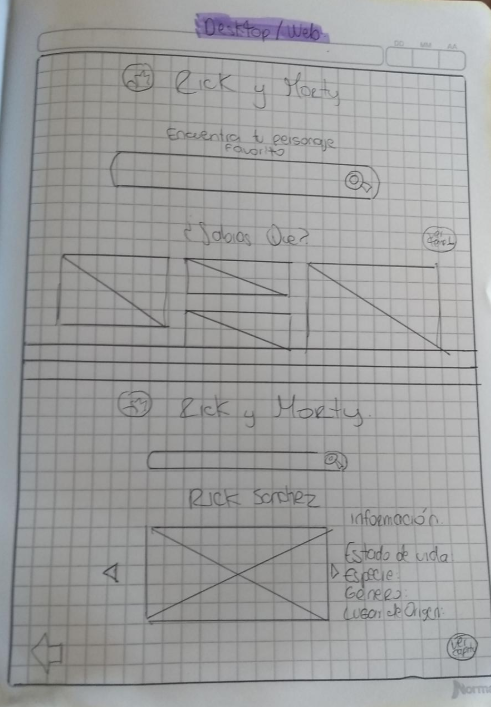 Desktop/Web
Rick y Morty
Encuentra tu personaje
Favorito
¿Sabias Que?
Rick y Morty
Rick Sanchez
información
Estado de vida
Especie
Género
Lugar de Origen
Norma